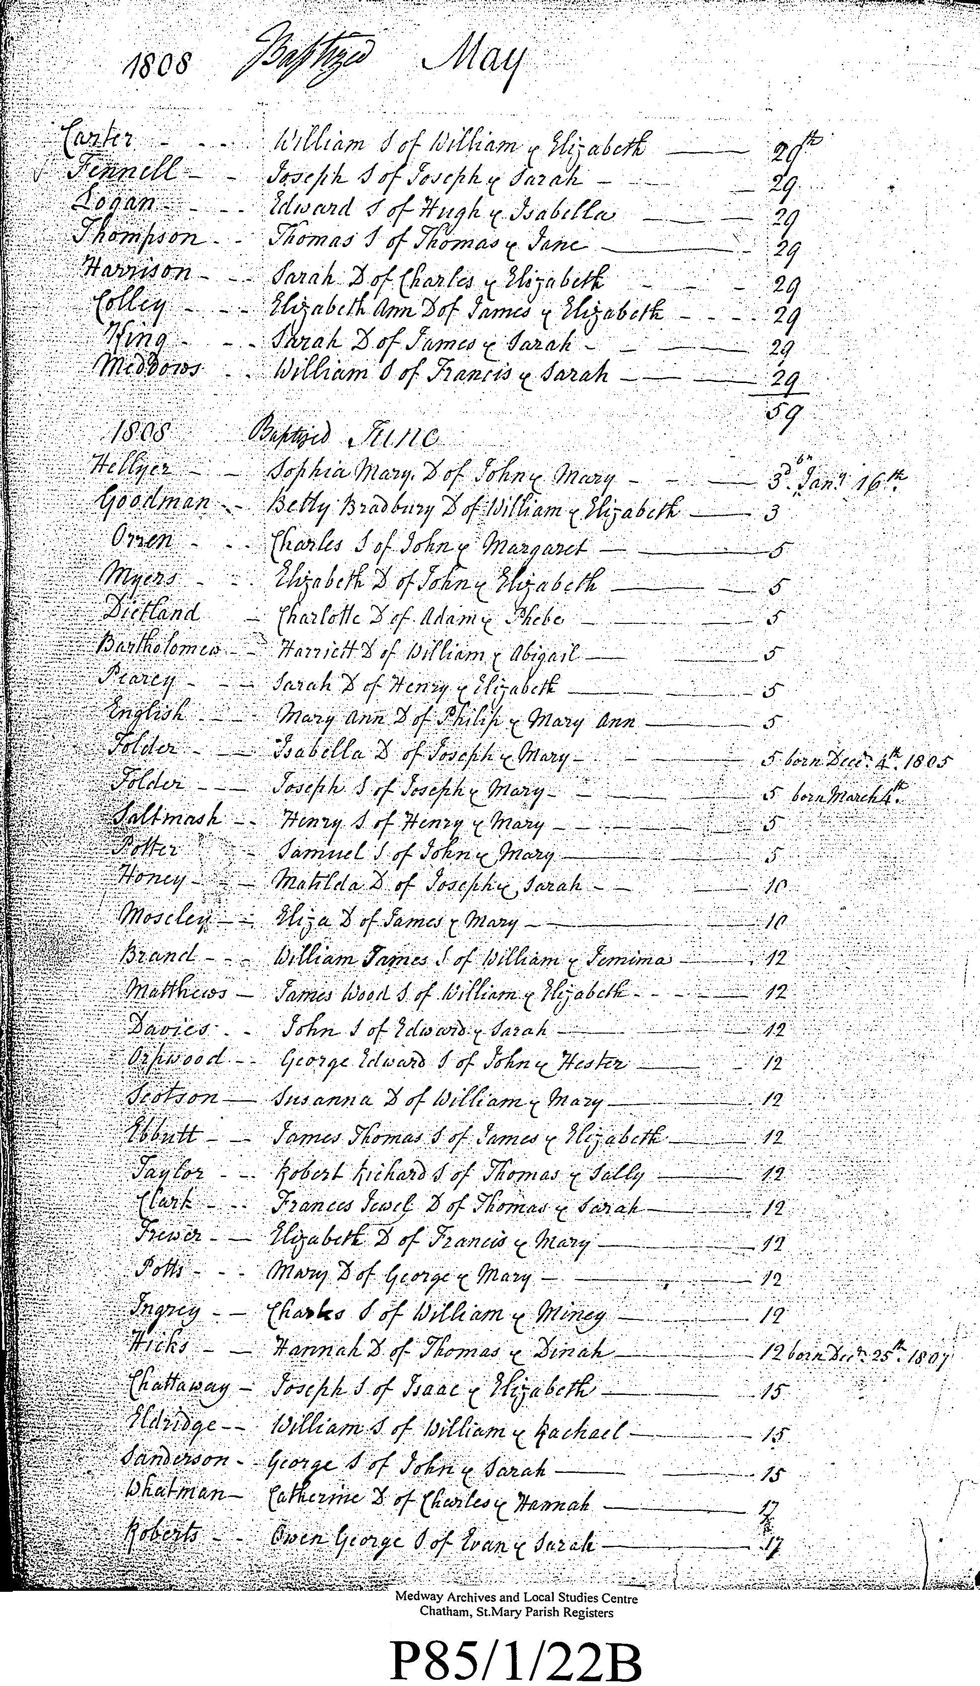 1808 Baptized May
Carter - - - William S of William & Elizabeth 29th
Fennell - - Joseph S of Joseph & Sarah - 29
Logan - - - Edward S of Hugh & Isabella 29
Thompson - - Thomas S of Thomas & Jane 29
Harrison - - Sarah D of Charles & Elizabeth 29
Colley - - - Elizabeth Ann D of James & Elizabeth 29
King - - - Sarah D of James & Sarah 29
Meddows - - William S of Francis & Sarah 29
59
1808 Baptized June
Hellyer - - Sophia Mary D of John & Mary 3d bn Jany 16th
Goodman - - Betty Bradbury D of William & Elizabeth 3
Orren - - - Charles S of John & Margaret 5
Myers - - - Elizabeth D of John & Elizabeth 5
Dietland - Charlotte D of Adam & Phebe 5
Bartholomew - - Harriett D of William & Abigail 5
Pearcy - - - Sarah D of Henry & Elizabeth 5
English - - - Mary Ann D of Philip & Mary Ann 5
Folder - - - Isabella D of Joseph & Mary 5 born Decr. 4th. 1805
Folder - - - Joseph S of Joseph & Mary 5 born March 4th.
Saltmash - - Henry S of Henry & Mary 5
Potter - Samuel S of John & Mary 5
Honey - - - Matilda D of Joseph & Sarah 10
Moseley - - Eliza D of James & Mary 10
Brand - - - William James S of William & Jemima 12
Matthews - James Wood S of William & Elizabeth 12
Davies - - John S of Edward & Sarah 12
Orpwood - - George Edward S of John & Hester 12
Scotson - Susanna D of William & Mary 12
Ebbutt - - James Thomas S of James & Elizabeth 12
Taylor - - - Robert Richard S of Thomas & Sally 12
Clark - - - Frances Jewel D of Thomas & Sarah 12
Frewer - - Elizabeth D of Francis & Mary 12
Potts - - - Mary D of George & Mary 12
Ingrey - - Charles S of William & Miney 12
Hicks - - Hannah D of Thomas & Dinah 12 born Decr. 25th. 1807
Chattaway - Joseph S of Isaac & Elizabeth 15
Eldridge - - William S of William & Rachael 15
Sanderson - George S of John & Sarah 15
Whatman - Catherine D of Charles & Hannah 17
Roberts - - Owen George S of Evan & Sarah 17
Medway Archives and Local Studies Centre
Chatham, St.Mary Parish Registers
P85/1/22B